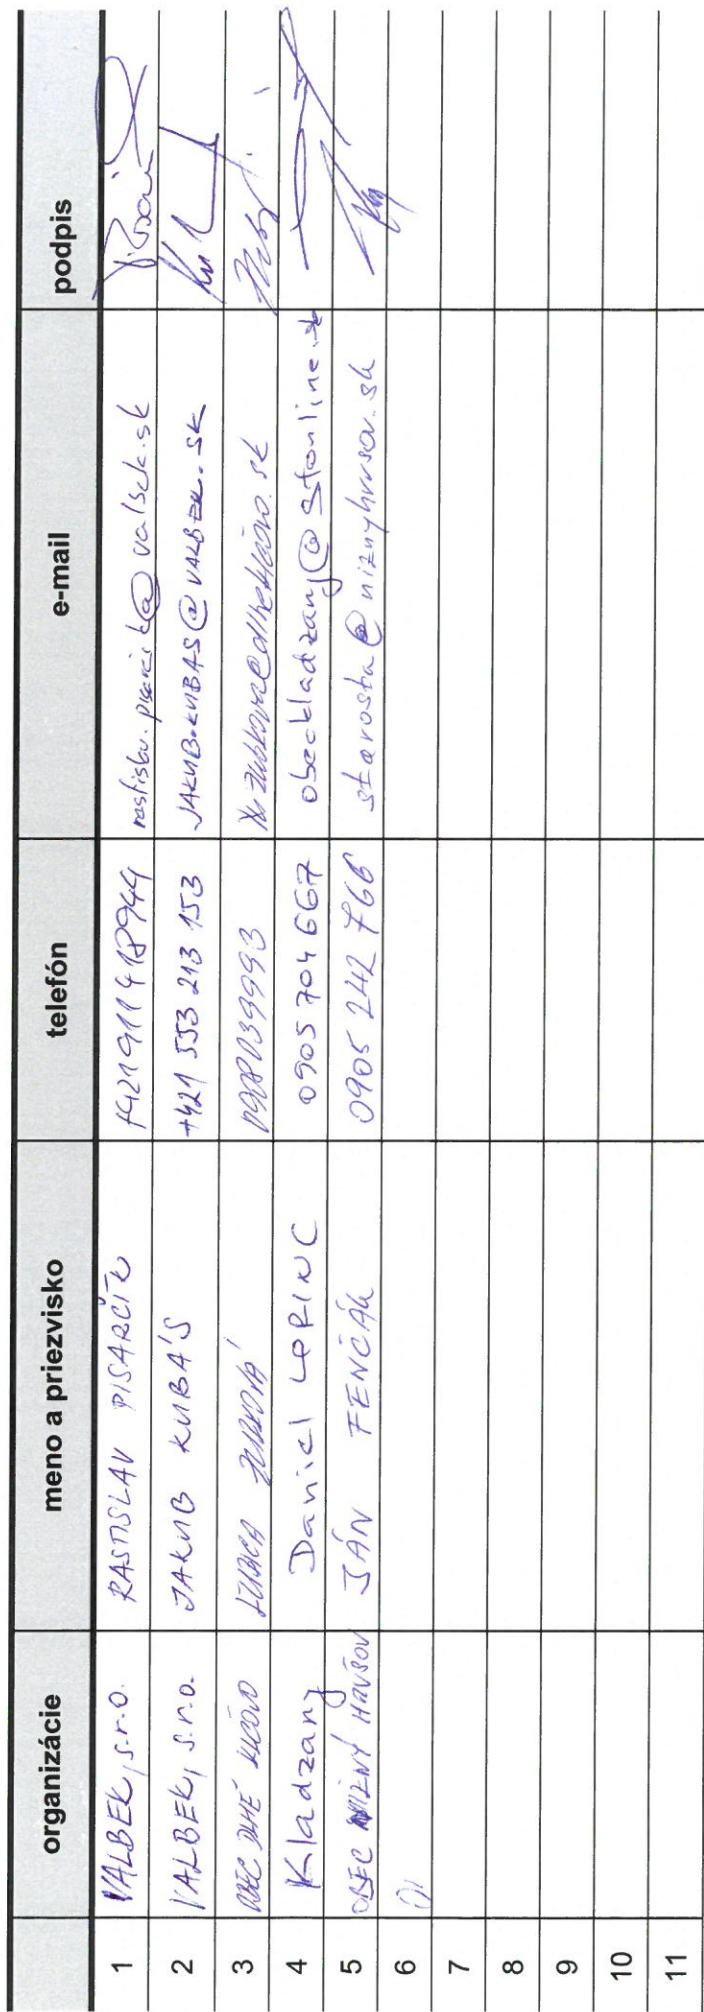 organizácie meno a priezvisko telefón e-mail podpis
1 VALBEK, s.r.o. RASTISLAV PISARČÍK +421911418944 rastislav.pisarcik@valbek.sk
2 VALBEK, s.r.o. JAKUB KUBÁŠ +421 553 213 153 JAKUB.KUBAS@VALBEK.SK
3 OBEC DLHÉ KLČOVO ĽUBICA 0908039993
4 Kladzany Daniel LORINC 0905 704 667 obeckladzany@stonline.sk
5 OBEC NIŽNÝ HRUŠOV JÁN FENČÁK 0905 242 766 starosta@niznyhrusov.sk
6
7
8
9
10
11